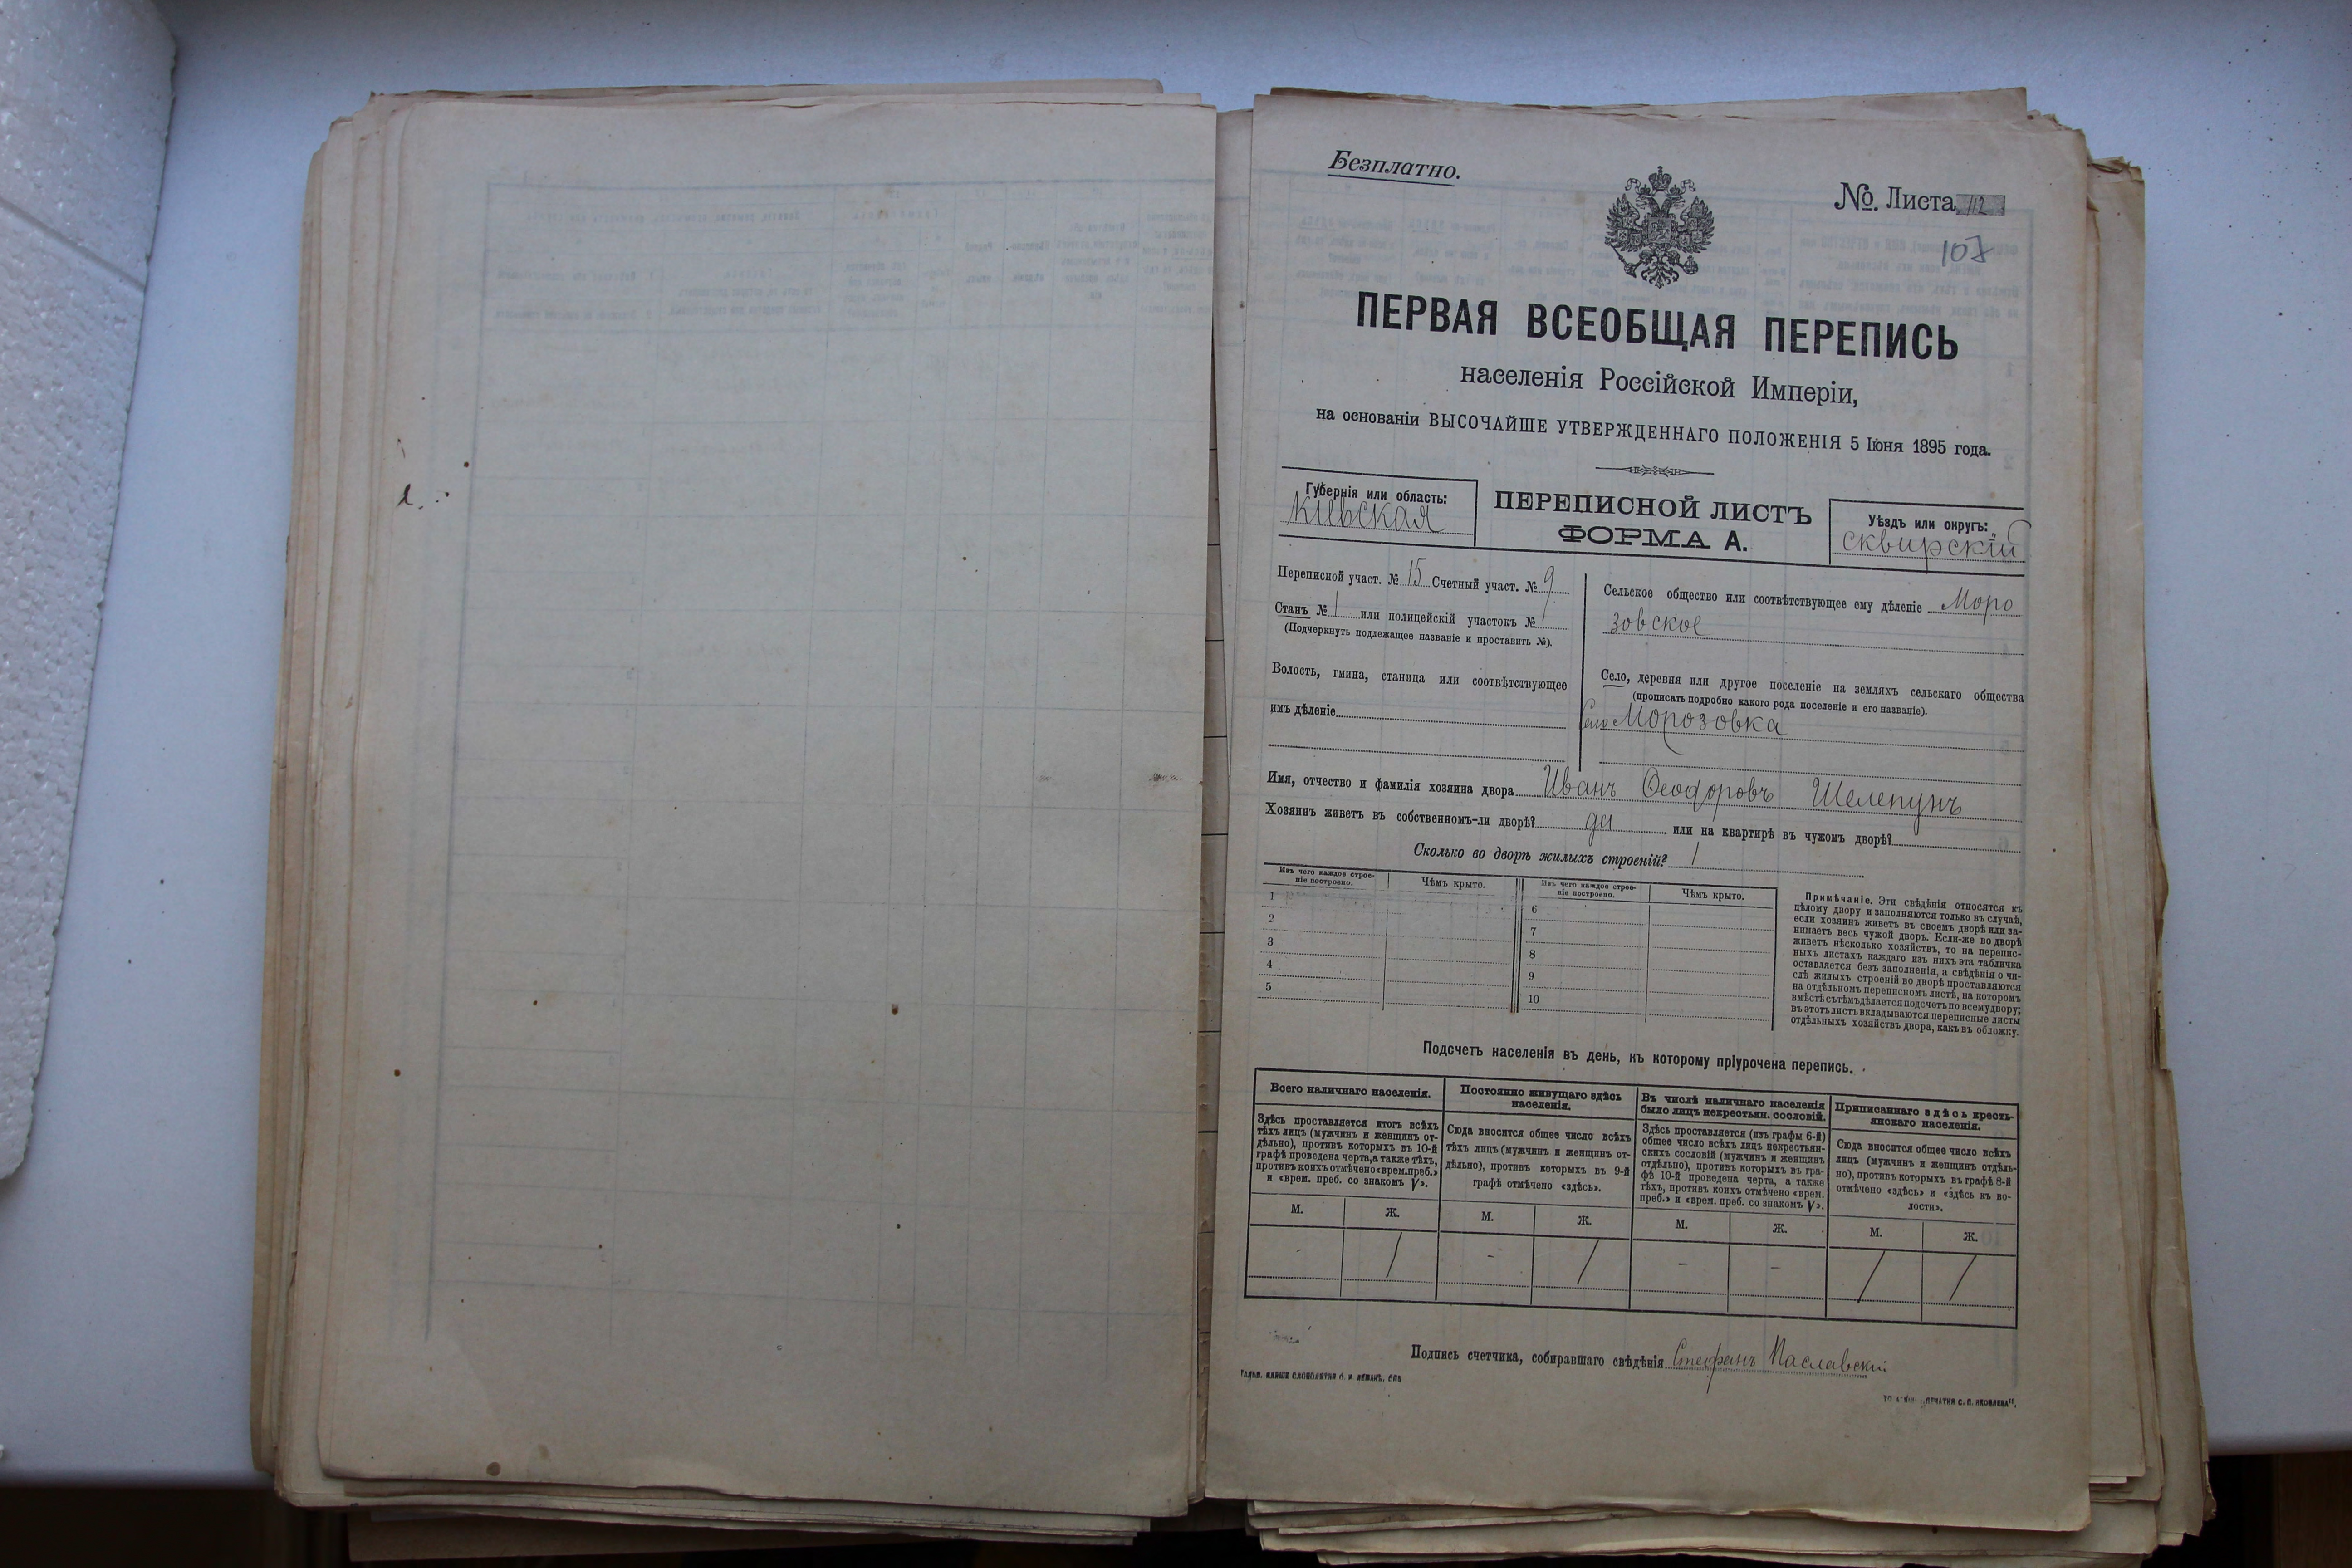 Безплатно.
№. Листа 112
107
ПЕРВАЯ ВСЕОБЩАЯ ПЕРЕПИСЬ
населенія Россійской Имперіи,
на основаніи ВЫСОЧАЙШЕ УТВЕРЖДЕННАГО ПОЛОЖЕНІЯ 5 Іюня 1895 года.
Губернія или область:
Кіевская
ПЕРЕПИСНОЙ ЛИСТЪ
ФОРМА А.
Уѣздъ или округъ:
Сквирскій
Переписной участ. № 15 Счетный участ. № 9
Станъ № 1 или полицейскій участокъ №
(Подчеркнуть подлежащее названіе и проставить №).
Волость, гмина, станица или соотвѣтствующее
имъ дѣленіе
Сельское общество или соотвѣтствующее ему дѣленіе Моро
зовское
Село, деревня или другое поселеніе на земляхъ сельскаго общества
(прописать подробно какого рода поселеніе и его названіе).
Село Морозовка
Имя, отчество и фамилія хозяина двора Иванъ Ѳеодоровъ Шелепунъ
Хозяинъ живетъ въ собственномъ-ли дворѣ? да или на квартирѣ въ чужомъ дворѣ?
Сколько во дворѣ жилыхъ строеній? 1
Изъ чего каждое строе-
ніе построено.
Чѣмъ крыто.
Изъ чего каждое строе-
ніе построено.
Чѣмъ крыто.
1
2
3
4
5
6
7
8
9
10
Примѣчаніе. Эти свѣдѣнія относятся къ
цѣлому двору и заполняются только въ случаѣ,
если хозяинъ живетъ въ своемъ дворѣ или за-
нимаетъ весь чужой дворъ. Если-же во дворѣ
живетъ нѣсколько хозяйствъ, то на перепис-
ныхъ листахъ каждаго изъ нихъ эта табличка
оставляется безъ заполненія, а свѣдѣнія о чи-
слѣ жилыхъ строеній во дворѣ проставляются
на отдѣльномъ переписномъ листѣ, на которомъ
вмѣстѣ съ тѣмъ дѣлается подсчетъ по всему двору;
въ этотъ листъ вкладываются переписные листы
отдѣльныхъ хозяйствъ двора, какъ въ обложку.
Подсчетъ населенія въ день, къ которому пріурочена перепись.
Всего наличнаго населенія.
Здѣсь проставляется итогъ всѣхъ
тѣхъ лицъ (мужчинъ и женщинъ от-
дѣльно), противъ которыхъ въ 10-й
графѣ проведена черта, а также тѣхъ,
противъ коихъ отмѣчено «врем. преб.»
и «врем. преб. со знакомъ V».
М. Ж.
- 1
Постоянно живущаго здѣсь
населенія.
Сюда вносится общее число всѣхъ
тѣхъ лицъ (мужчинъ и женщинъ от-
дѣльно), противъ которыхъ въ 9-й
графѣ отмѣчено «здѣсь».
М. Ж.
- 1
Въ числѣ наличнаго населенія
было лицъ некрестьян. сословій.
Здѣсь проставляется (изъ графы 6-й)
общее число всѣхъ лицъ некрестьян-
скихъ сословій (мужчинъ и женщинъ
отдѣльно), противъ которыхъ въ гра-
фѣ 10-й проведена черта, а также
тѣхъ, противъ коихъ отмѣчено «врем.
преб.» и «врем. преб. со знакомъ V».
М. Ж.
- -
Приписаннаго здѣсь кресть-
янскаго населенія.
Сюда вносится общее число всѣхъ
лицъ (мужчинъ и женщинъ отдѣль-
но), противъ которыхъ въ графѣ 8-й
отмѣчено «здѣсь» и «здѣсь къ во-
лости».
М. Ж.
1 1
Подпись счетчика, собиравшаго свѣдѣнія Стефанъ Паславскій